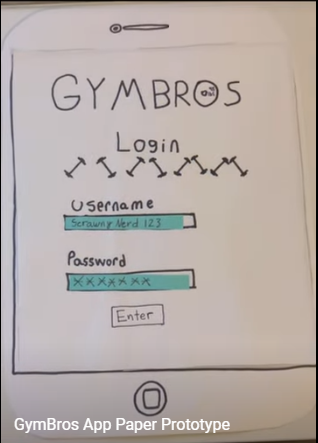 GYMBROS
Login
Username
Scrawny Nerd 123
Password
XXXXXXX
Enter
GymBros App Paper Prototype